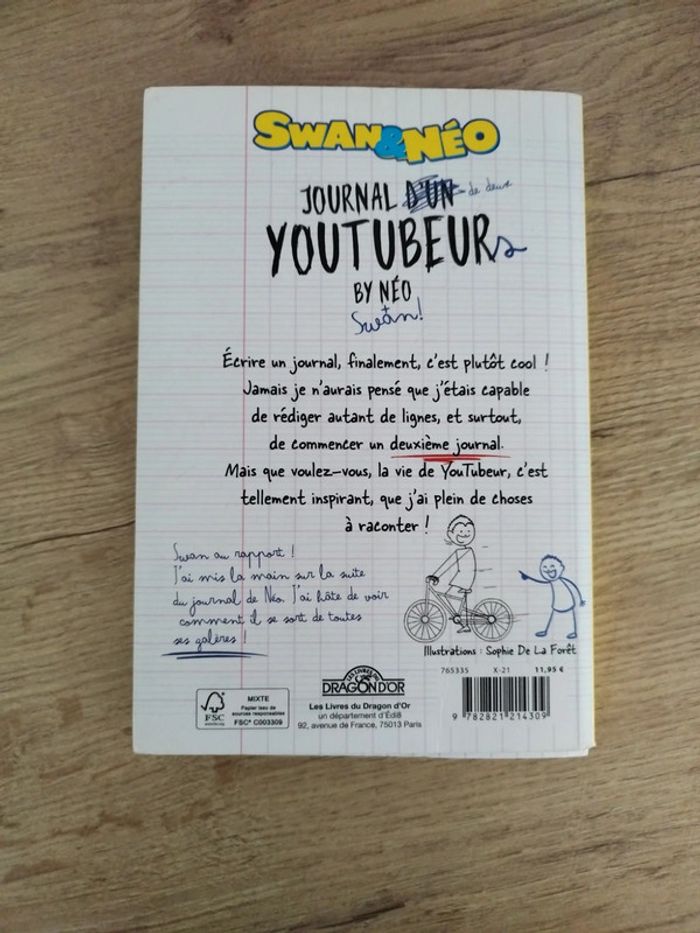 SWAN&NÉO
JOURNAL D'UN de deux
YOUTUBEURs
BY NÉO
+
Swan!
Écrire un journal, finalement, c'est plutôt cool !
Jamais je n'aurais pensé que j'étais capable
de rédiger autant de lignes, et surtout,
de commencer un deuxième journal.
Mais que voulez-vous, la vie de YouTubeur, c'est
tellement inspirant, que j'ai plein de choses
à raconter !
Swan au rapport !
J'ai mis la main sur la suite
du journal de Néo. J'ai hâte de voir
comment il se sort de toutes
ses galères !
Illustrations : Sophie De La Forêt
765335 X-21 11,95 €
FSC
www.fsc.org
MIXTE
Papier issu de
sources responsables
FSC® C003309
LES LIVRES DU
DRAGON D'OR
Les Livres du Dragon d'Or
un département d'Edi8
92, avenue de France, 75013 Paris
9 782821 214309